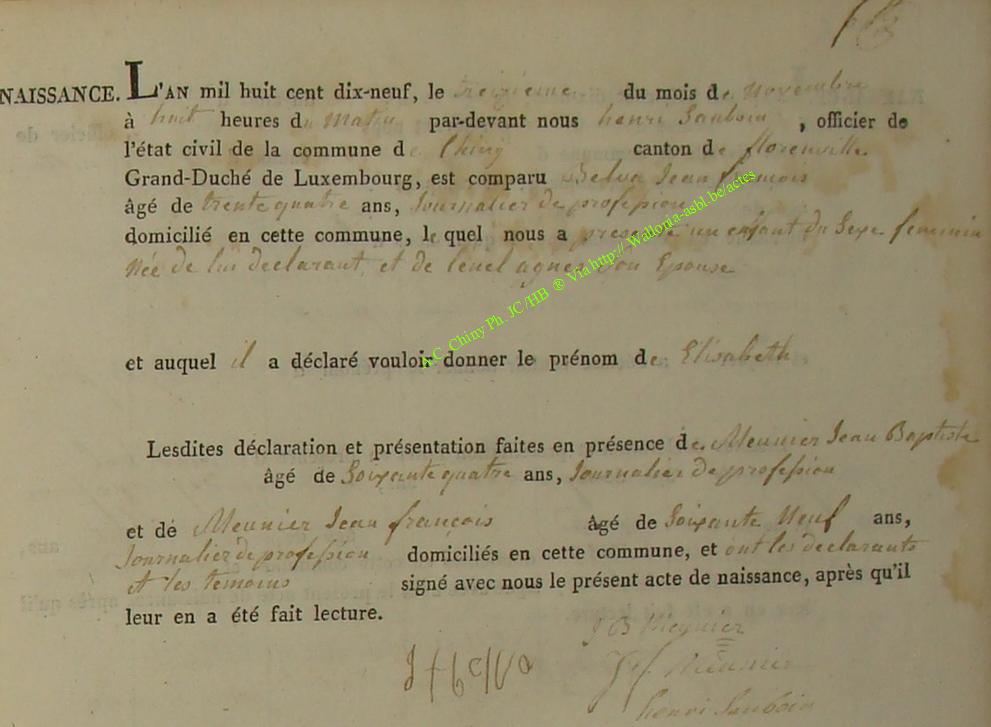 NAISSANCE. L'AN mil huit cent dix-neuf, le treizieme du mois de novembre
à huit heures du Matin par-devant nous henri Sauboin , officier de
l'état civil de la commune de Chiny canton de florenville
Grand-Duché de Luxembourg, est comparu Belva Jean françois
âgé de trente quatre ans, Journalier de profession
domicilié en cette commune, le quel nous a presenté un enfant du Sexe feminin
Née de lui declarant et de agnes Son Epouse
et auquel il a déclaré vouloir donner le prénom de Elisabeth
Lesdites déclaration et présentation faites en présence de Meunier Jean Baptiste
âgé de Soixante quatre ans, Journalier de profession
et de Meunier Jean françois âgé de Soixante Neuf ans,
Journalier de profession domiciliés en cette commune, et ont les declarants
et les temoins signé avec nous le présent acte de naissance, après qu'il
leur en a été fait lecture.
J B Meynier
J f belva
J f Meunier
henri Sauboin
A.C. Chiny Ph. JC/HB ® Via http:// Wallonia-asbl.be/actes